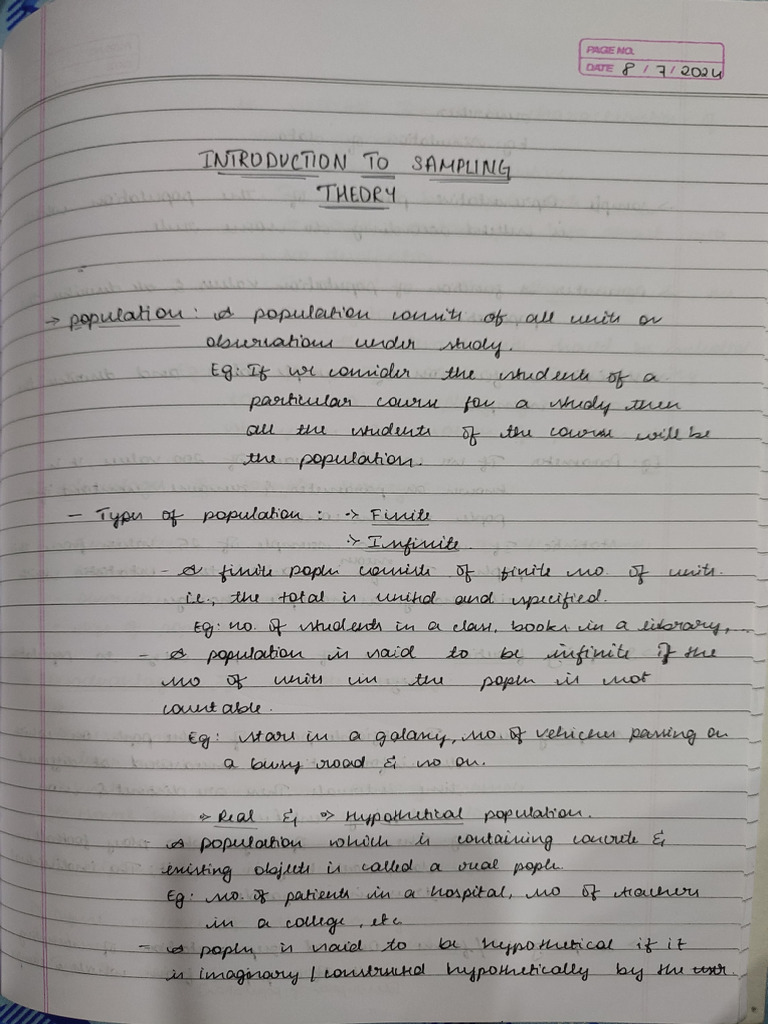 PAGE NO.
DATE 8 / 7 / 2024
INTRODUCTION TO SAMPLING
THEORY
→ population : A population consits of all units or
observations under study.
Eg: If we consider the students of a
particular course for a study then
all the students of the course will be
the population.
- Types of population : → Finite
→ Infinite
- A finite popln consists of finite no. of units.
i.e., the total is united and specified.
Eg: no. of students in a class, books in a library,...
- A population is said to be infinite if the
no of units in the popln is not
countable.
Eg: stars in a galaxy, no. of vehicles passing on
a busy road & so on.
→ Real & → Hypothetical population.
A population which is containing concrete &
existing objects is called a real popln.
Eg: no. of patients in a hospital, no of teachers
in a college, etc
- A popln is said to be hypothetical if it
is imaginary / constructed hypothetically by the user.